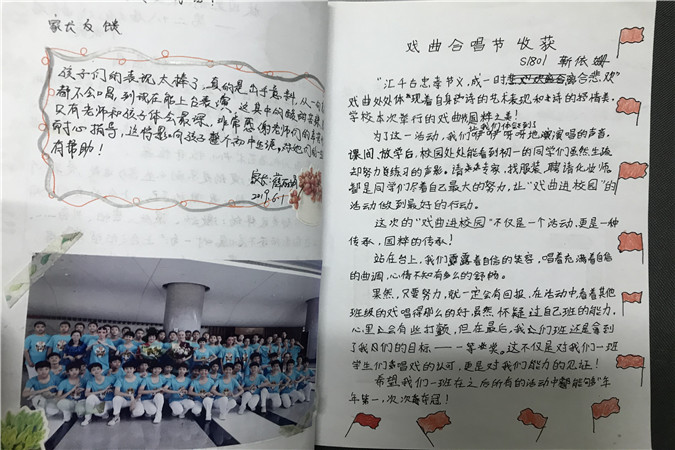 家长反馈
孩子们的表现太棒了,真的是出乎意料,从一句
都不会唱,到现在的上台表演,这其中的酸甜苦辣
只有老师和孩子体会最深,非常感谢老师们的
耐心指导,这将是对孩子整个初中生活
有帮助!
家长:
2019.6.1
戏曲合唱节收获
S1801 靳依姗
“汇千古忠孝节义,成一时离合悲欢”
戏曲处处体现着自身诗的艺术表现和诗的轻情美。
学校本次举行的戏曲进校园
为了这一活动,我们咿咿呀呀地演唱的声音。
课间、放学后,校园处处能看到初一的同学们虽然生疏
却努力练习的声影。请专家,找服装,聘请化妆师,
都是同学们尽着自己最大的努力,让“戏曲进校园”的
活动做到最好的行动。
这次的“戏曲进校园”不仅是一个活动,更是一种
传承,国粹的传承!
站在台上,我们露着自信的笑容,唱着充满着自信
的曲调,心情不知有多么的舒畅。
果然,只要努力,就一定会有回报,在活动中看着其他
班级的戏唱得那么的好,虽然怀疑过自己班的能力,
心里会有些打颤,但在最后,我们班还是拿到
了我们的目标——一等奖。这不仅是对我们一班
学生们表唱戏的认可,更是对我们能力的见证!
希望我们一班在之后所有的活动中都能够“年
年第一,次次夺冠!